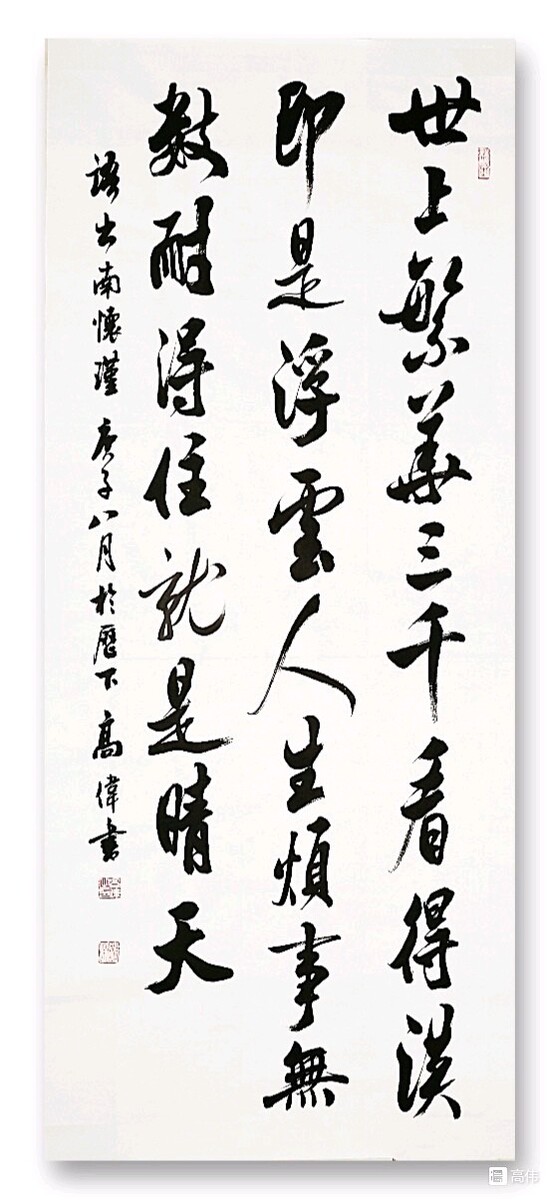 世上繁華三千看得淡
即是浮雲人生煩事無
數耐得住就是晴天
語出南懷瑾 庚子八月於歷下 高偉書
高伟